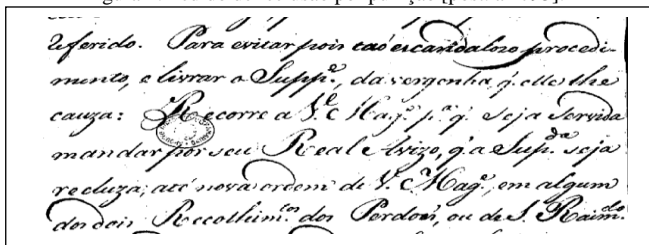 referido. Para evitar pois taõ escandalozo procedi-
mento, e livrar o Supp.e, da vergonha q̃. elle lhe
cauza: Recorre a V.e Mag.e p.a q̃. seja servida
mandar por seu Real Avizo, q̃. a Sup.da seja
recluza, até nova ordem de V. Mag.e, em algum
dos dois Recolhim.tos dos Perdoẽs, ou de S. Raim.do